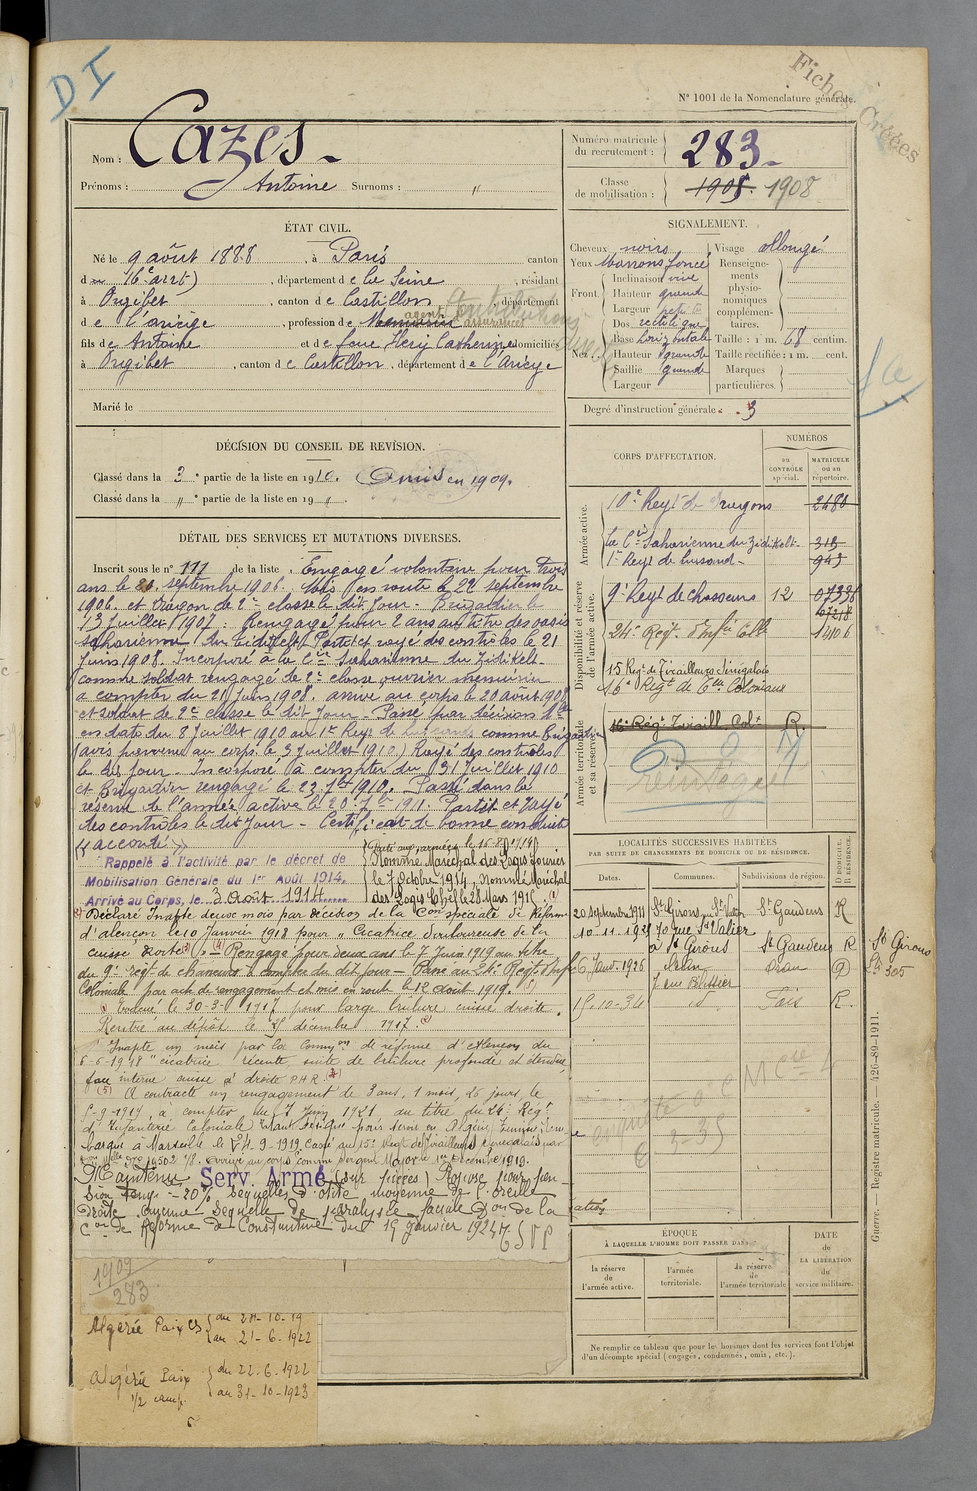 D I
Fiches Créées
N° 1001 de la Nomenclature générale.
Nom : Cazes.
Prénoms : Antoine Surnoms : "
Numéro matricule du recrutement : 283.
Classe de mobilisation : 1908
ÉTAT CIVIL.
Né le 9 août 1888, à Paris canton
d 16e arrt), département de la Seine, résidant
à Orgibet, canton de Castillon, département
de l'ariège, profession de Menuisier agent assurances
fils de Antoine et de feue Héry Catherine domiciliés
à Orgibet, canton de Castillon, département de l'Ariège
Marié le
SIGNALEMENT.
Cheveux noirs
Yeux Marrons foncé
Front. Inclinaison vive
Hauteur grande
Largeur petite
Nez. Dos rectiligne
Base horizontale
Hauteur grande
Saillie grande
Largeur
Visage allongé
Renseignements physionomiques complémentaires.
Taille : 1 m. 68 centim.
Taille rectifiée : 1 m. cent.
Marques particulières.
Degré d'instruction générale : 3
DÉCISION DU CONSEIL DE REVISION.
Classé dans la 3e partie de la liste en 1910. Omis en 1909.
Classé dans la " e partie de la liste en 19 " .
DÉTAIL DES SERVICES ET MUTATIONS DIVERSES.
Inscrit sous le n° 111 de la liste. Engagé volontaire pour trois
ans le 21 septembre 1906. Mis en route le 22 septembre
1906. et Dragon de 2e classe le dit jour. Brigadier le
13 Juillet 1907. Rengagé pour 2 ans au titre des oasis
sahariennes (du Tidikelt) Partit et rayé des contrôles le 21
Juin 1908. Incorporé à la Cie Saharienne du Tidikelt.
comme soldat rengagé de 2e classe ouvrier menuisier
a compter du 21 Juin 1908. arrivé au corps le 20 août 1908
et soldat de 2e classe le dit jour. Passé par décision Mlle
en date du 8 Juillet 1910 au 1er Regt de hussards comme Brigadier
(avis parvenu au corps le 3 Juillet 1910) Rayé des contrôles
le dit jour. Incorporé à compter du 31 Juillet 1910
et Brigadier rengagé le 23 7bre 1910. Passé dans la
réserve de l'armée active le 20 7bre 1911. Partit et rayé
des contrôles le dit jour. Certificat de bonne conduite
"accordé"
Rappelé à l'activité par le décret de
Mobilisation Générale du 1er Août 1914.
Arrivé au Corps, le 3 août 1914
Parti aux armées le 16-8-1914
Nommé Maréchal des Logis fourrier
le 7 Octobre 1914, Nommé Maréchal
des Logis Chef le 28 Mars 1915
Déclaré Inapte deux mois par décision de la Con spéciale de Réforme
d'alençon le 10 Janvier 1918 pour "Cicatrice douloureuse de la
cuisse droite". (4) Rengagé pour deux ans le 7 Juin 1919 au titre
du 9e régt de chasseurs à compter du dit jour — Passé au 24e Régt d'Infie
Coloniale par acte de rengagement et mis en route le 12 août 1919. (5)
Evacué le 30-3-1917 pour large brûlure cuisse droite.
Rentré au dépôt le 25 décembre 1917. (2)
Inapte un mois par la Common de réforme d'Alençon du
6-6-1918 "cicatrice récente suite de brûlure profonde et étendue
face interne cuisse dte droite P H R (4)
(5) A contracté un rengagement de 3 ans, 1 mois, 26 jours, le
5-9-1919, a compter du 7 Juin 1921, au titre du 24e Régt
d'Infanterie Coloniale
barqué à Marseille le 4-9-1919. Passé au 15e Régt de Tirailleurs Sénégalais par
arrivé au corps comme Sergent Major le 1er Décembre 1919.
Maintenu Serv. Armé (sur pièces) Proposé pour pen-
sion temp. – 20% Séquelles d'otite moyenne de l'oreille
droite. aucune Séquelle de paralysie faciale Don de la
Con de Réforme de Constantine du 15 Janvier 1924 TSVP
CORPS D'AFFECTATION.
NUMÉROS
au CONTRÔLE spécial.
MATRICULE ou au répertoire.
Armée active.
10e Regt de Dragons 2480
la Cie Saharienne du Tidikelt 313
1er Regt de hussards 943
Disponibilité et réserve de l'armée active.
9e Regt de chasseurs 12
24e Régt. d'Infie Colle 1406
15 Régt de Tirailleurs Sénégalais
16e Régt de Tlle Coloniaux
Armée territoriale et sa réserve.
16e Régt Tiraill. Col. R
LOCALITÉS SUCCESSIVES HABITÉES
PAR SUITE DE CHANGEMENTS DE DOMICILE OU DE RÉSIDENCE.
Dates. Communes. Subdivisions de région. D DOMICILE. R RÉSIDENCE.
20 septembre 1911 St Girons St Gaudens R
10-11-1925 70 rue St Valier
à St Girons St Gaudens R
6 Janv. 1926 Oran D
15-10-34 id R.
St Girons
305
ÉPOQUE
À LAQUELLE L'HOMME DOIT PASSER DANS
la réserve de l'armée active.
l'armée territoriale.
la réserve de l'armée territoriale
DATE de LA LIBÉRATION du service militaire.
Ne remplir ce tableau que pour les hommes dont les services font l'objet
d'un décompte spécial (engagés, condamnés, omis, etc.).
Guerre. — Registre matricule. — 426-89-1911.
1909
283
Algérie Paix CS { du 21-10-19
au 21-6-1922
Algérie Paix { du 22.6.1922
1/2 camp. au 31-10-1923